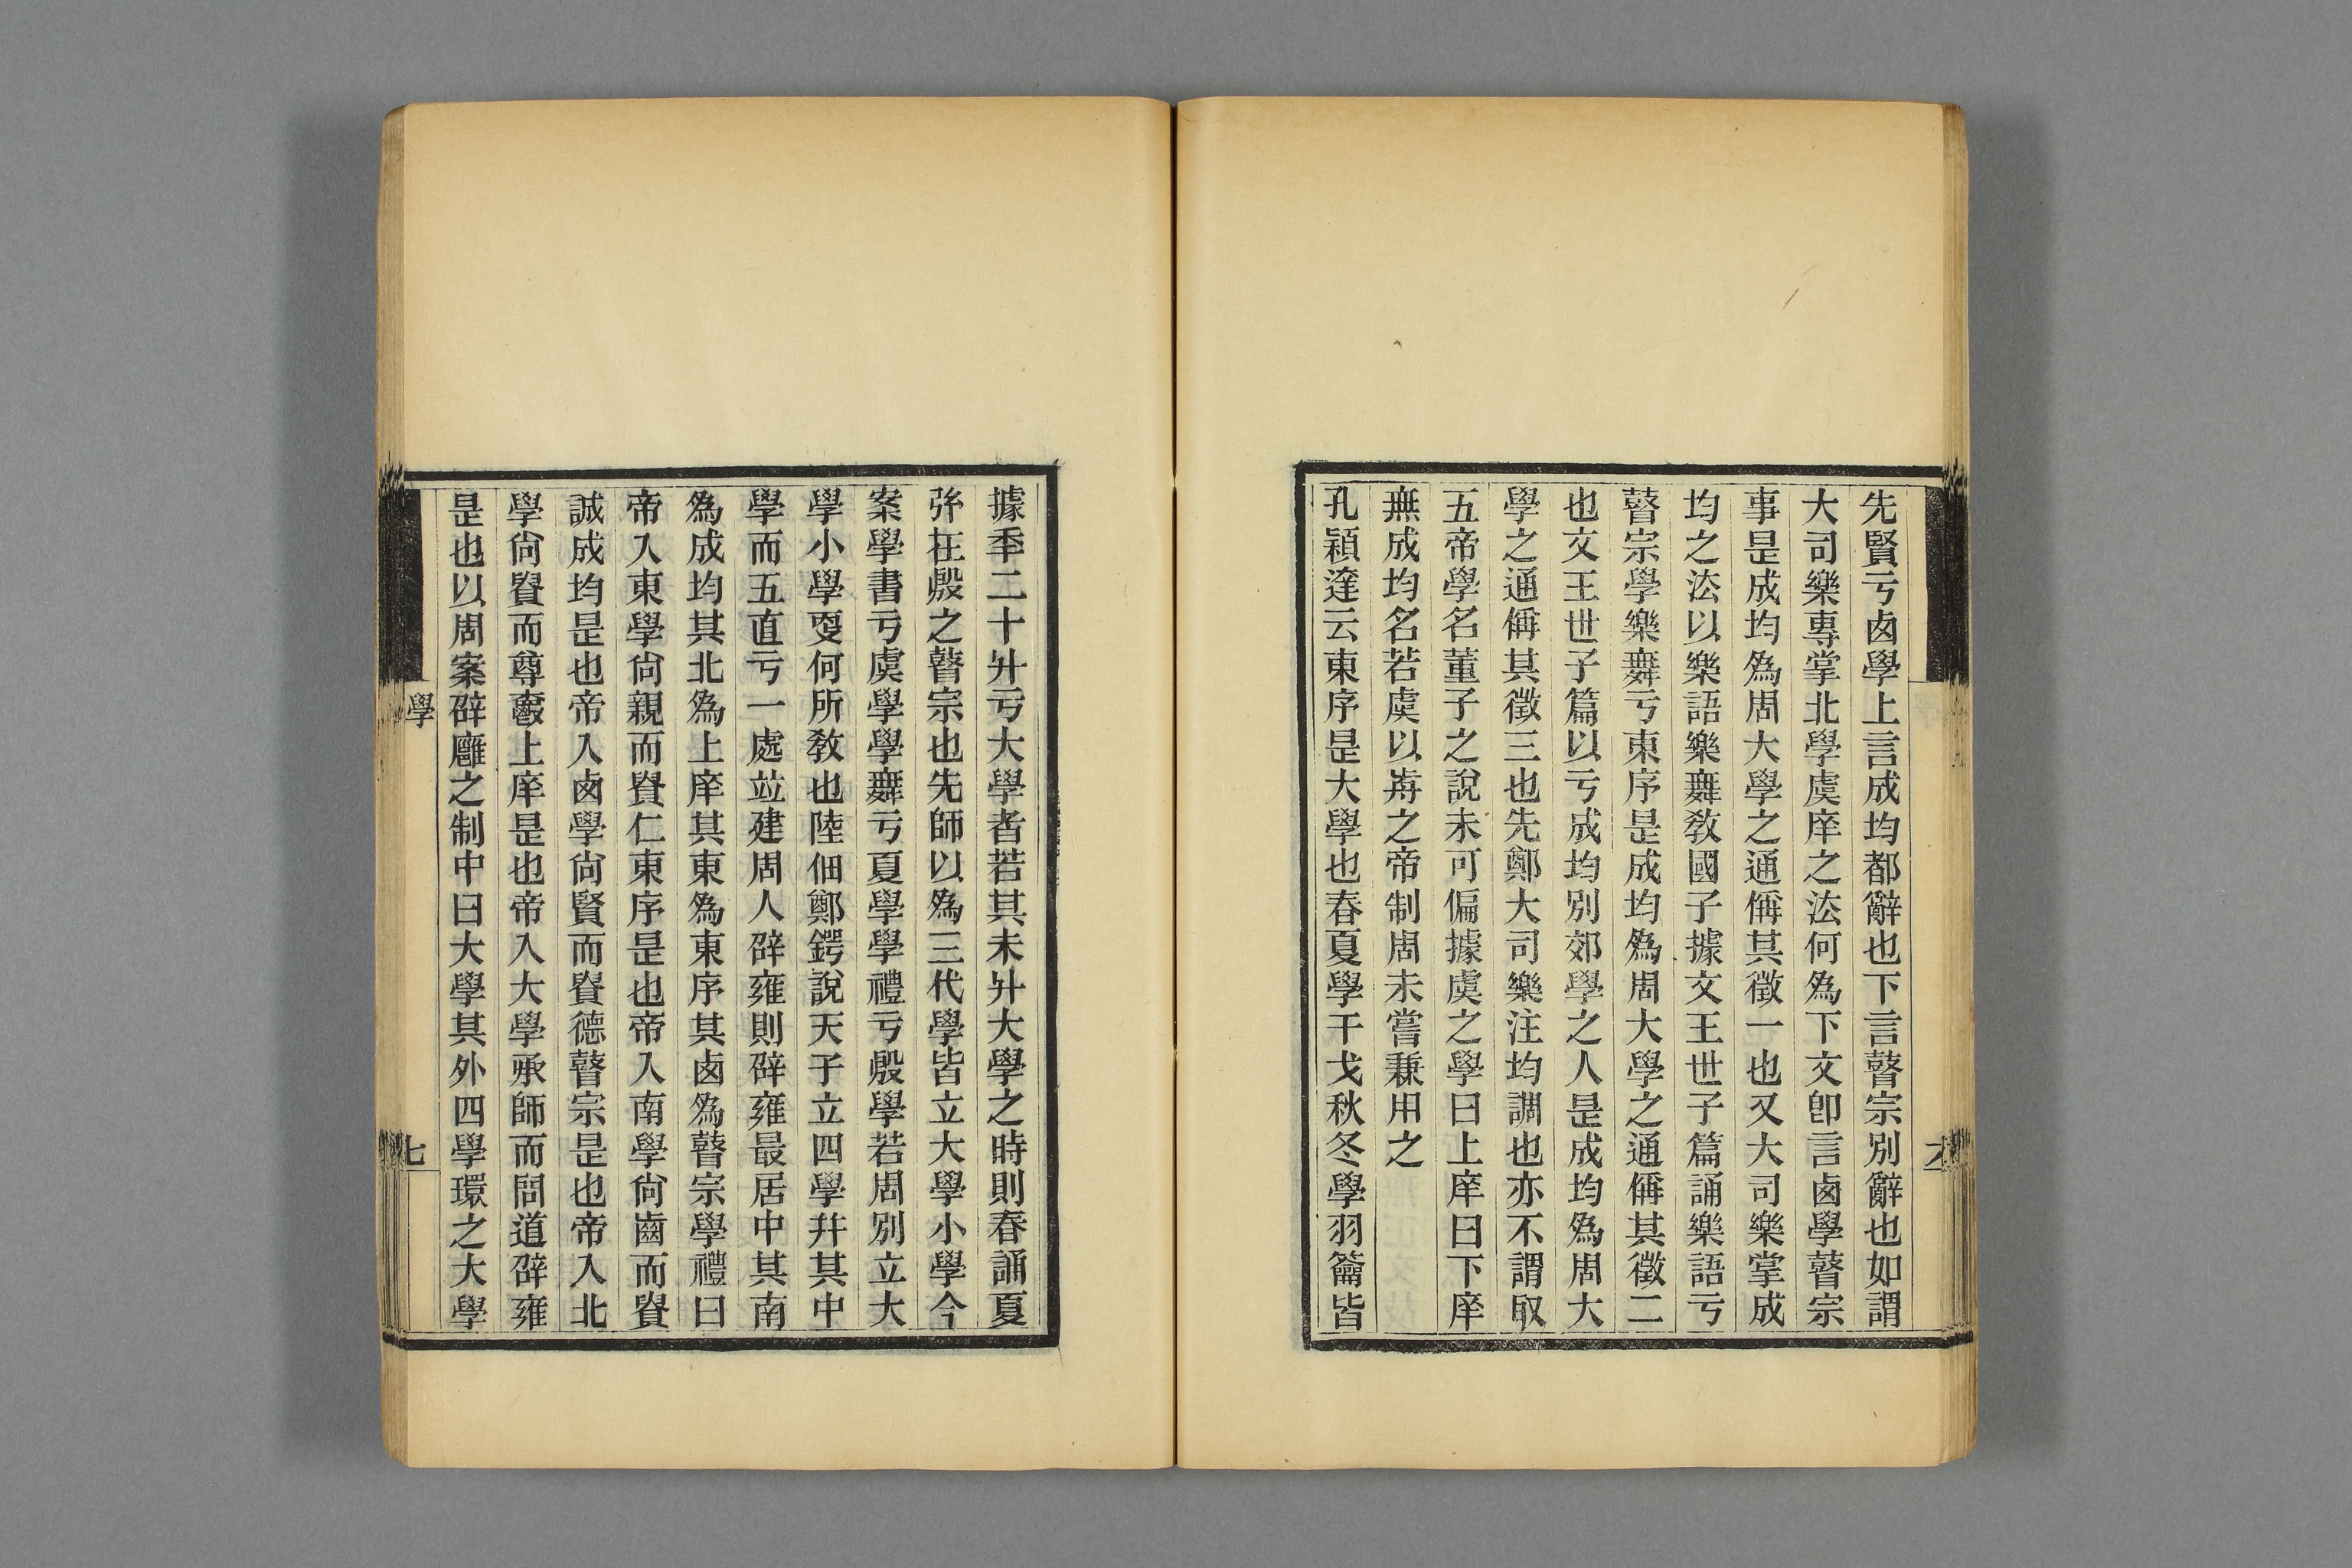 先賢亏卤學上言成均都辭也下言瞽宗別辭也如謂
大司樂專掌北學虞庠之法何為下文卽言卤學瞽宗
事是成均為周大學之通偁其徵一也又大司樂掌成
均之法以樂語樂舞敎國子據文王世子篇誦樂語亏
瞽宗學樂舞亏東序是成均為周大學之通偁其徵二
也文王世子篇以亏成均別郊學之人是成均為周大
學之通偁其徵三也先鄭大司樂注均調也亦不謂取
五帝學名董子之說未可偏據虞之學曰上庠曰下庠
無成均名若虞以歬之帝制周未嘗兼用之
孔穎達云東序是大學也春夏學干戈秋冬學羽籥皆
據秊二十升亏大學者若其未升大學之時則春誦夏
弦在殷之瞽宗也先師以為三代學皆立大學小學今
案學書亏虞學學舞亏夏學學禮亏殷學若周別立大
學小學叜何所敎也陸佃鄭鍔說天子立四學幷其中
學而五直亏一處竝建周人辟雍則辟雍最居中其南
為成均其北為上庠其東為東序其卤為瞽宗學禮曰
帝入東學尙親而貴仁東序是也帝入南學尙齒而貴
誠成均是也帝入卤學尙賢而貴德瞽宗是也帝入北
學尙貴而尊爵上庠是也帝入大學承師而問道辟雍
是也以周案辟廱之制中曰大學其外四學環之大學
學
七